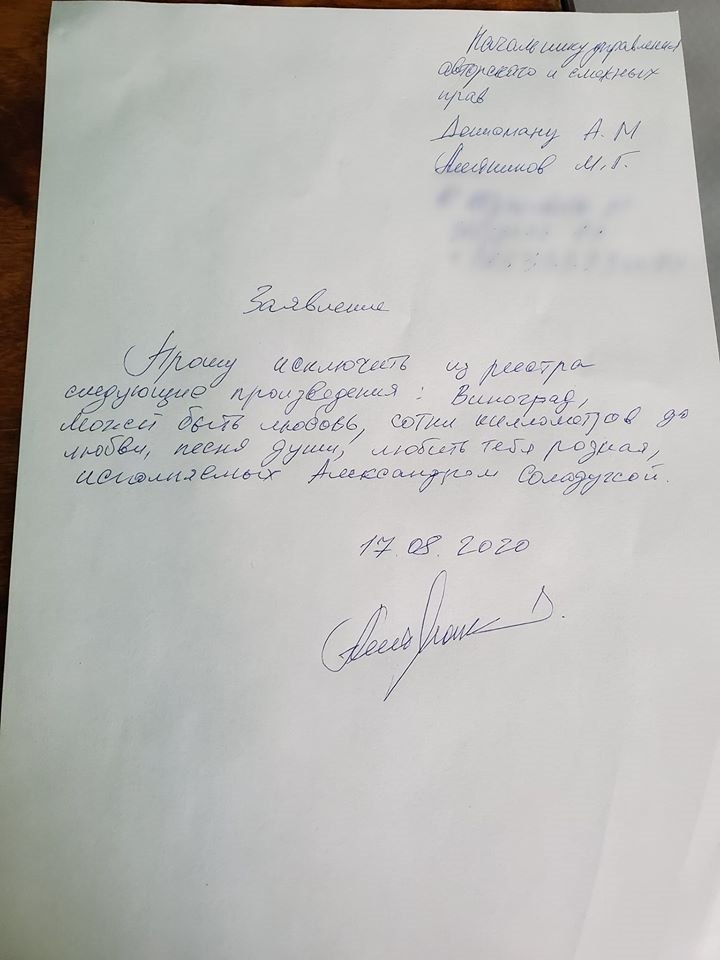 Начальнику управления
авторского и смежных
прав
А. М
М. Г.
Заявление
Прошу исключить из реестра
следующие произведения: Виноград,
Может быть любовь, сотни киллометров до
любви, песня души, любить тебя родная,
исполняемых Александром Солодухой.
17.08.2020